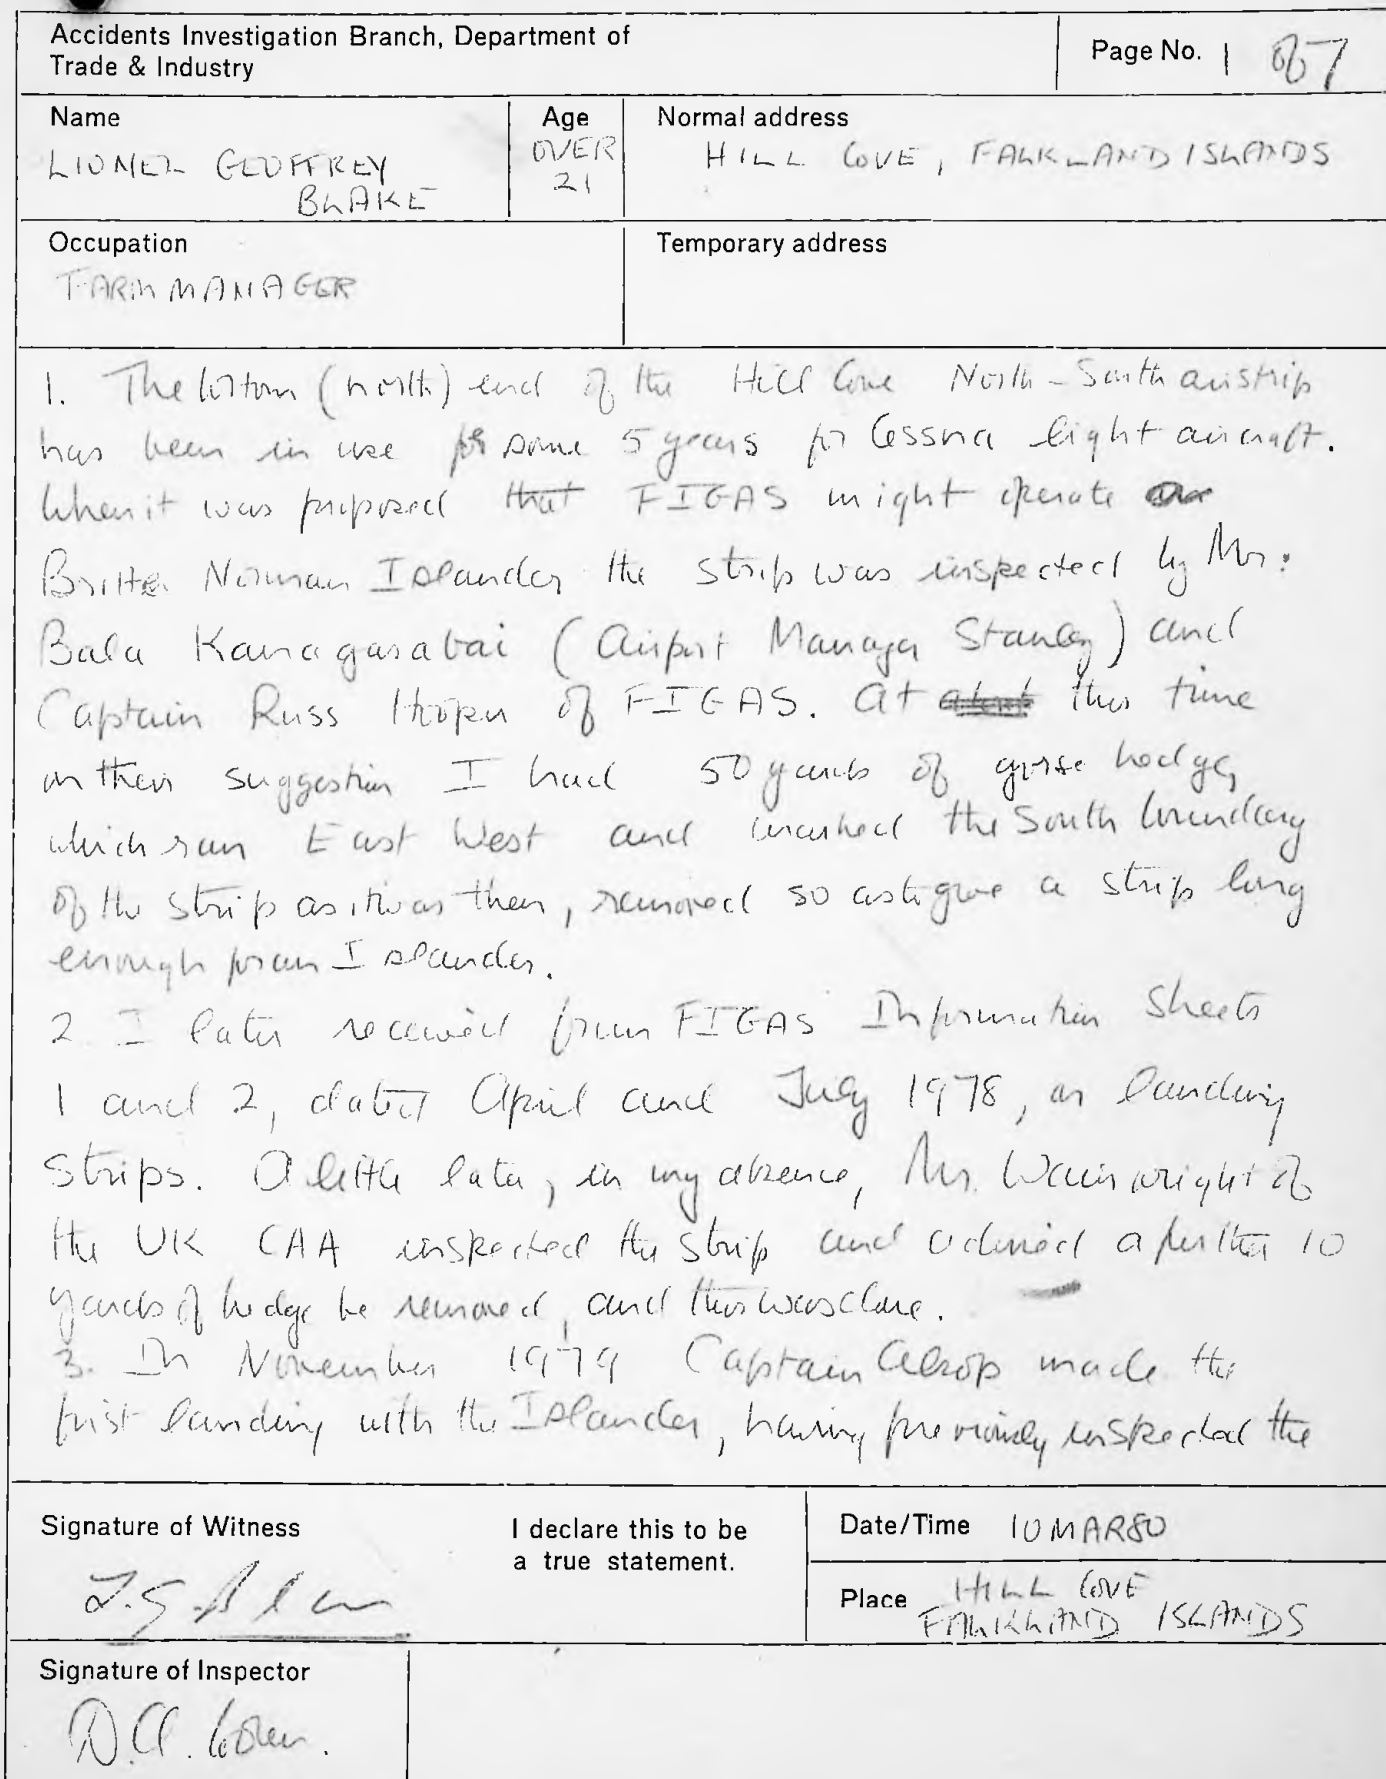 Accidents Investigation Branch, Department of
Trade & Industry
Page No. 1 of 7
Name
LIONEL GEOFFREY
BLAKE
Age
OVER
21
Normal address
HILL COVE, FALKLAND ISLANDS
Occupation
FARM MANAGER
Temporary address
1. The bottom (north) end of the Hill Cove North-South airstrip
has been in use for some 5 years for Cessna light aircraft.
When it was proposed that FIGAS might operate
Britten Norman Islander the strip was inspected by Mr.
Bala Kanagasabai (Airport Manager Stanley) and
Captain Russ Hooper of FIGAS. At this time
on their suggestion I had 50 yards of gorse hedge,
which ran East West and marked the South boundary
of the strip as it was then, removed so as to give a strip long
enough for an Islander.
2. I later received from FIGAS Information Sheets
1 and 2, dated April and July 1978, on landing
strips. A little later, in my absence, Mr. Wainwright of
the UK CAA inspected the strip and advised a further 10
yards of hedge be removed, and this was done.
3. In November 1979 Captain Alsop made the
first landing with the Islander, having previously inspected the
Signature of Witness
L.G. Blake
I declare this to be
a true statement.
Date/Time 10 MAR 80
Place HILL COVE
FALKLAND ISLANDS
Signature of Inspector
D.A.